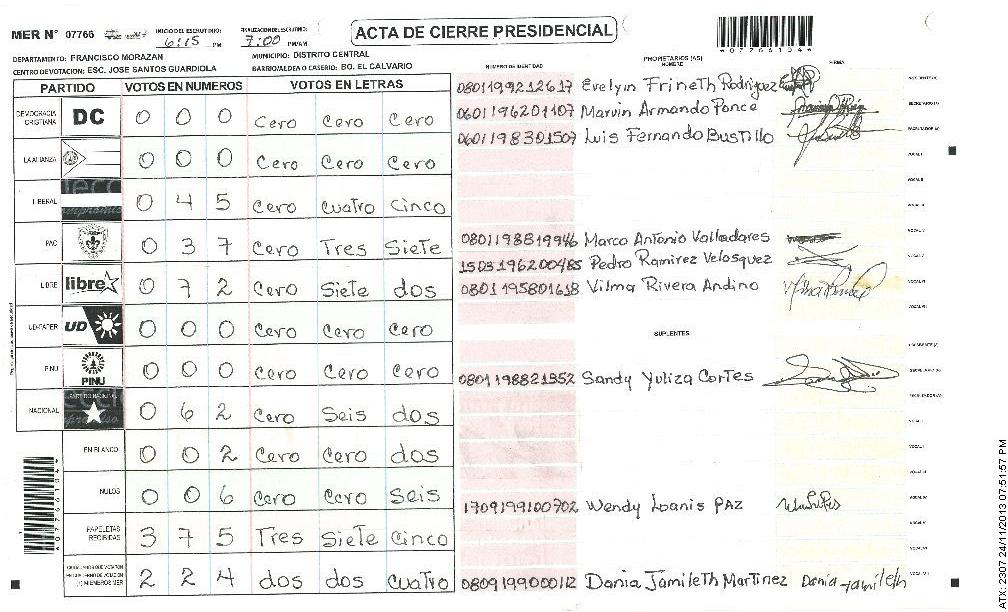 MER N° 07766
INICIO DEL ESCRUTINIO: 6:15 PM
FINALIZACION ESCRUTINIO: 7:00 PM/AM
ACTA DE CIERRE PRESIDENCIAL
07766104
DEPARTAMENTO: FRANCISCO MORAZAN
MUNICIPIO: DISTRITO CENTRAL
CENTRO DE VOTACION: ESC. JOSE SANTOS GUARDIOLA
BARRIO/ALDEA O CASERIO: BO. EL CALVARIO
PARTIDO VOTOS EN NUMEROS VOTOS EN LETRAS
NUMERO DE IDENTIDAD
PROPIETARIOS (AS)
NOMBRE
FIRMA
DEMOCRACIA CRISTIANA DC 0 0 0 Cero Cero Cero
LA ALIANZA 0 0 0 Cero Cero Cero
LIBERAL 0 4 5 Cero Cuatro Cinco
PAC 0 3 7 Cero Tres Siete
LIBRE libre 0 7 2 Cero Siete dos
UD-FAPER UD 0 0 0 Cero Cero Cero
PINU PINU 0 0 0 Cero Cero Cero
NACIONAL PARTIDO NACIONAL 0 6 2 Cero Seis dos
EN BLANCO 0 0 2 Cero Cero dos
NULOS 0 0 6 Cero Cero Seis
PAPELETAS RECIBIDAS 3 7 5 Tres Siete Cinco
2 2 4 dos dos Cuatro
0801199212617 Evelyn Frineth Rodriguez
0601196201107 Marvin Armando Ponce SECRETARIO (A)
0601198301507 Luis Fernando Bustillo ESCRUTADOR (A)
0801198819946 Marco Antonio Valladares
1503196200485 Pedro Ramirez Velosquez
0801195801618 Vilma Rivera Andino
SUPLENTES
0801198821352 Sandy Yuliza Cortes
1709199100702 Wendy Loanis PAZ
0809199000112 Dania Jamileth Martinez Dania Jamileth
ATX: 2307 24/11/2013 07:51:57 PM